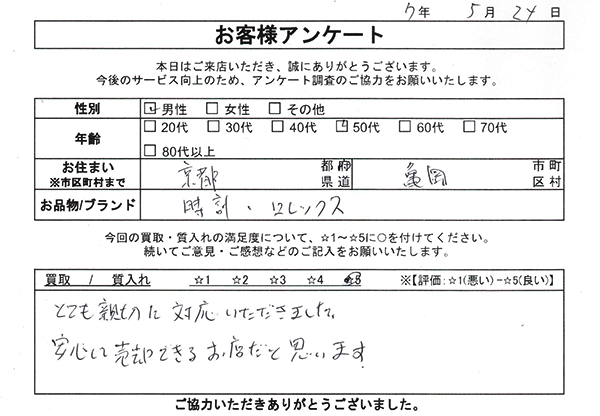 7年 5月 24日
お客様アンケート
本日はご来店いただき、誠にありがとうございます。
今後のサービス向上のため、アンケート調査のご協力をお願いいたします。
性別 男性 女性 その他
年齢 20代 30代 40代 50代 60代 70代
80代以上
お住まい ※市区町村まで 京都 都府県道 亀岡 市町区村
お品物/ブランド 時計・ロレックス
今回の買取・質入れの満足度について、☆1～☆5に○を付けてください。
続いてご意見・ご感想などのご記入をお願いいたします。
買取 / 質入れ ☆1 ☆2 ☆3 ☆4 ☆5 ※【評価:☆1(悪い)-☆5(良い)】
とても親切に対応いただきました。
安心して売却できるお店だと思います
ご協力いただきありがとうございました。